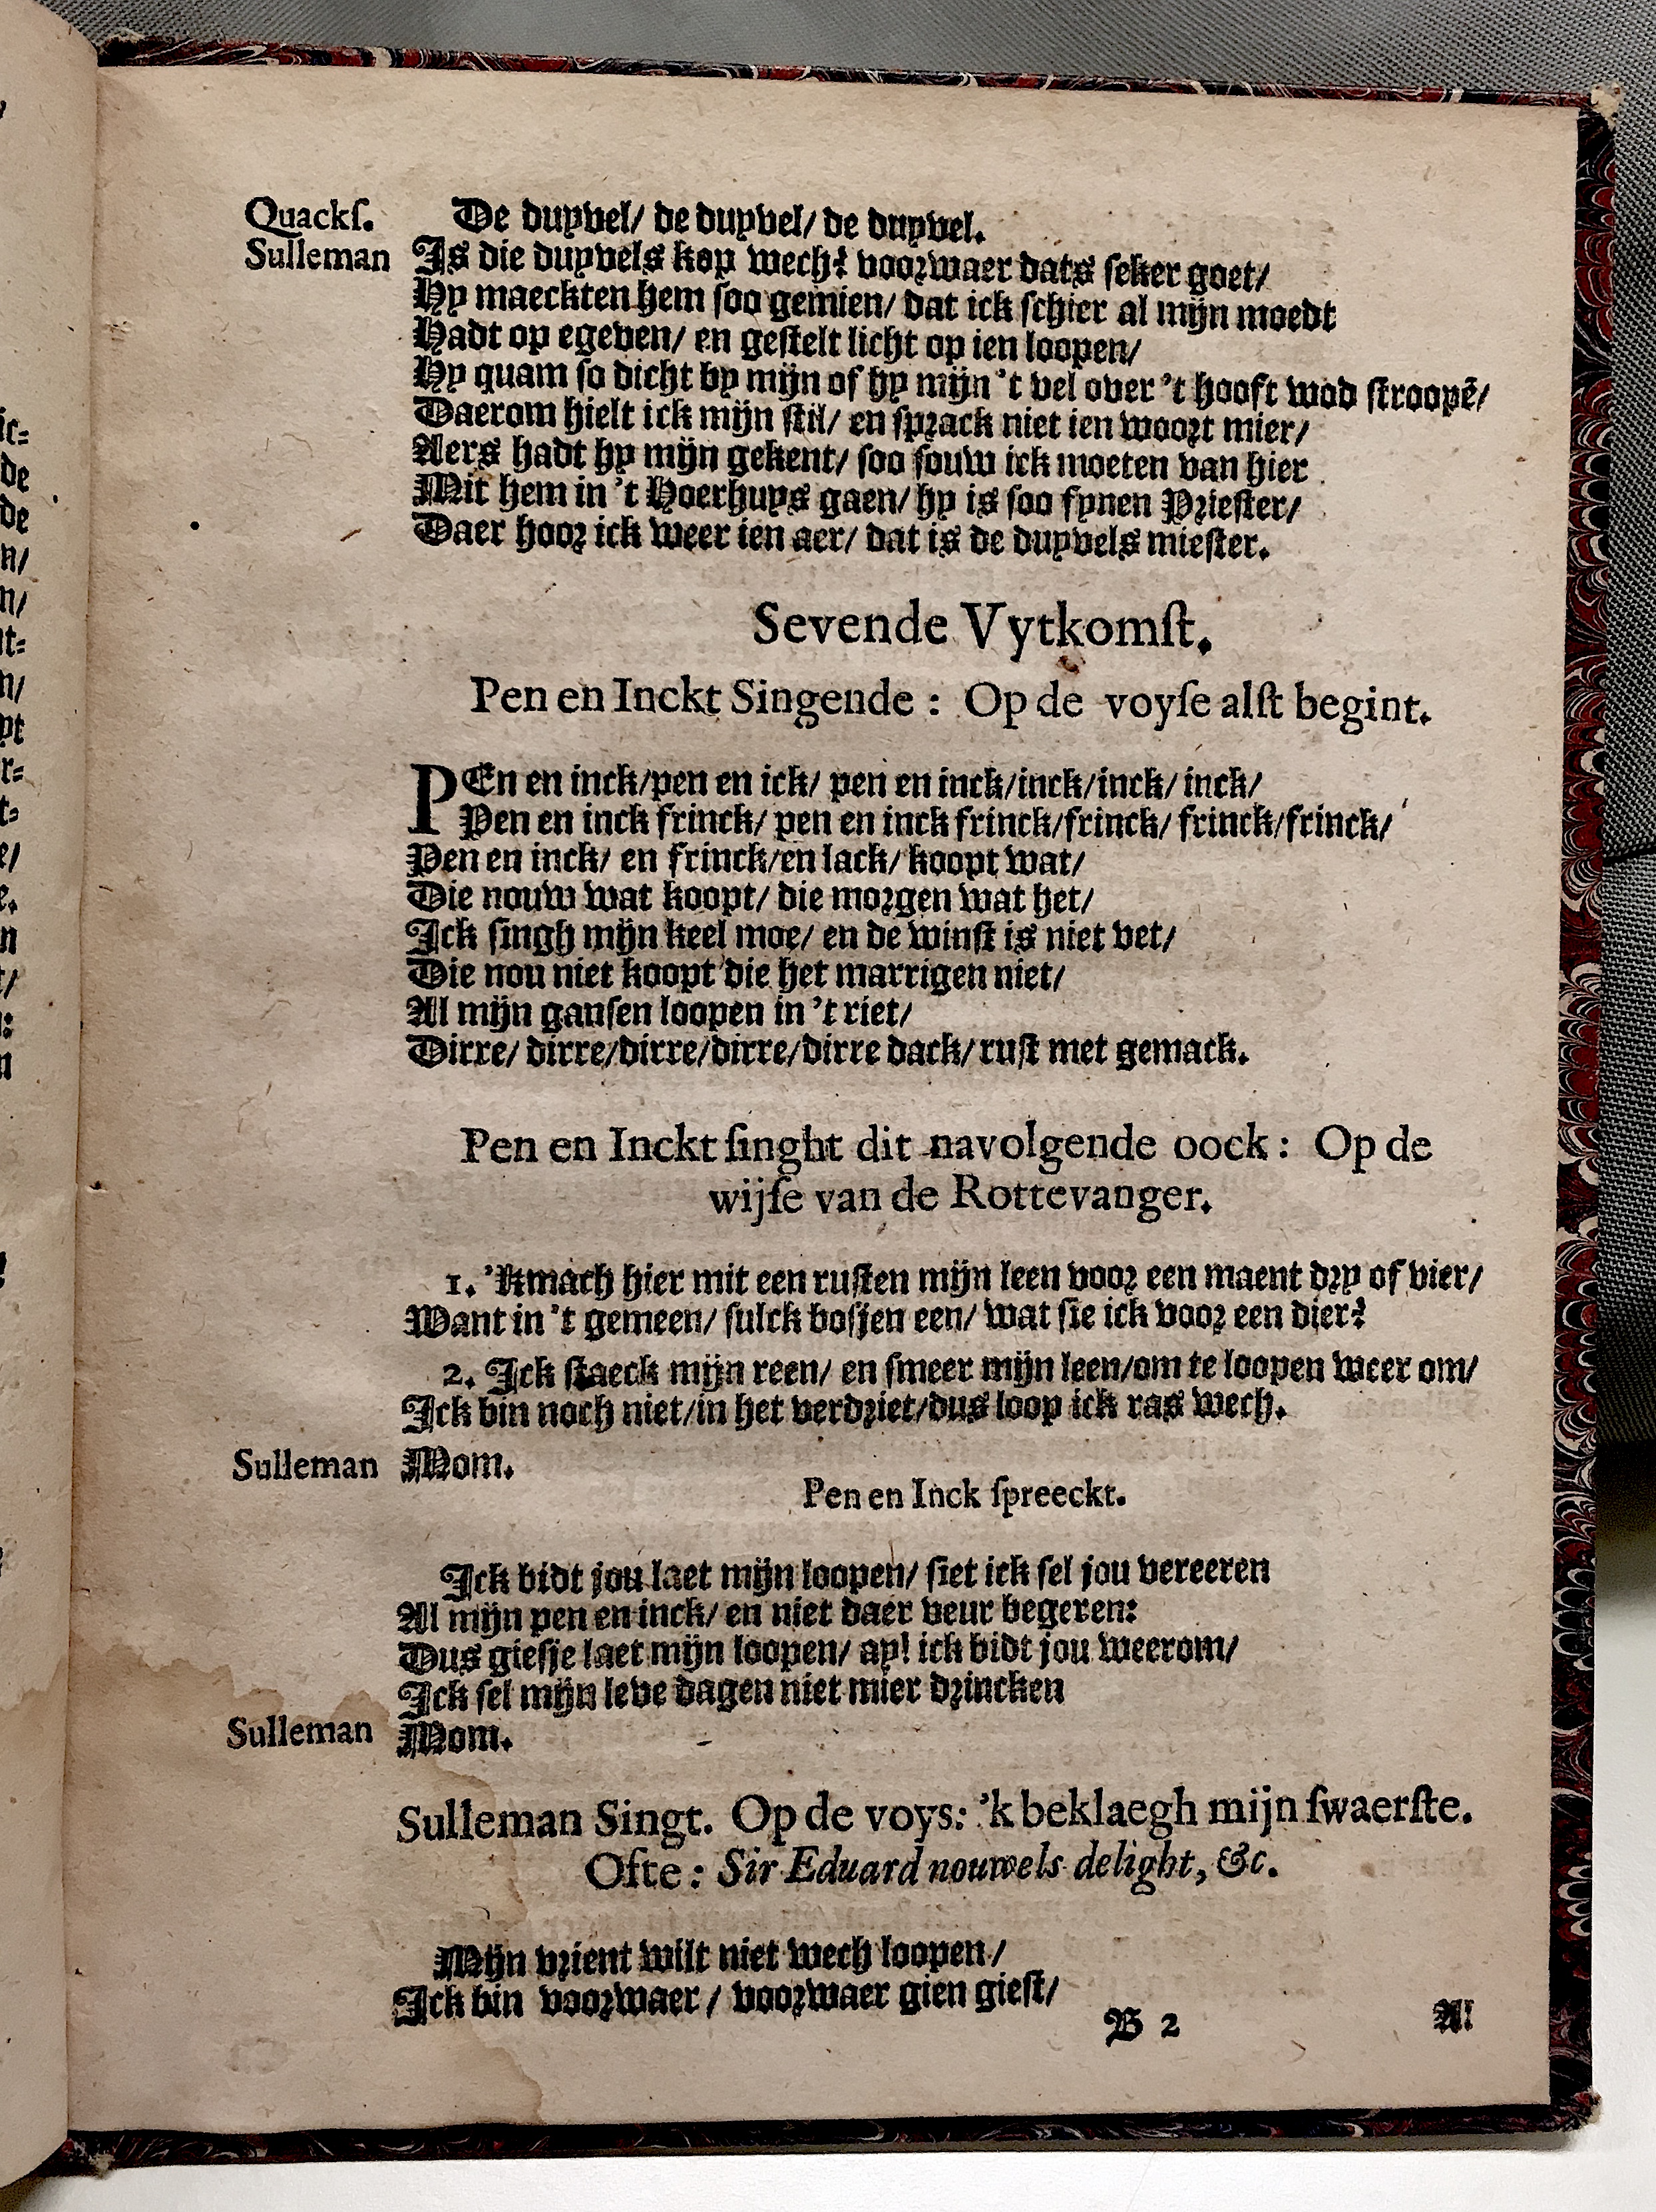 Quackſ. De duyvel/ de duyvel/ de duyvel.
Sulleman Is die duyvels kop wech? voorwaer dats seker goet/
Hy maeckten hem soo gemien/ dat ick schier al mijn moedt
Hadt op egeven/ en gestelt licht op ien loopen/
Hy quam so dicht by mijn of hy mijn 't vel over 't hooft wod stroopẽ/
Daerom hielt ick mijn stil/ en sprack niet ien woort mier/
Aers hadt hy mijn gekent/ soo souw ick moeten van hier
Mit hem in 't Hoerhuys gaen/ hy is soo fynen Priester/
Daer hoor ick weer ien aer/ dat is de duyvels miester.
Sevende Vytkomſt.
Pen en Inckt Singende : Op de voyſe alſt begint.
PEn en inck/pen en ick/ pen en inck/inck/inck/ inck/
Pen en inck frinck/ pen en inck frinck/frinck/ frinck/frinck/
Pen en inck/ en frinck/en lack/ koopt wat/
Die nouw wat koopt/ die morgen wat het/
Ick singh mijn keel moe/ en de winst is niet vet/
Die nou niet koopt die het marrigen niet/
Al mijn gansen loopen in 't riet/
Dirre/ dirre/dirre/dirre/dirre dack/ rust met gemack.
Pen en Inckt ſinght dit navolgende oock : Op de
wijſe van de Rottevanger.
1. 'Kmach hier mit een rusten mijn leen voor een maent dry of vier/
Want in 't gemeen/ sulck bosjen een/ wat sie ick voor een dier?
2. Ick staeck mijn reen/ en smeer mijn leen/om te loopen weer om/
Ick bin noch niet/in het verdriet/dus loop ick ras wech.
Sulleman Mom.
Pen en Inck ſpreeckt.
Ick bidt jou laet mijn loopen/ siet ick sel jou vereeren
Al mijn pen en inck/ en niet daer veur begeren:
Dus giesje laet mijn loopen/ ay! ick bidt jou weerom/
Ick sel mijn leve dagen niet mier drincken
Sulleman Mom.
Sulleman Singt. Op de voys: 'k beklaegh mijn ſwaerſte.
Ofte : Sir Eduard nouwels delight, &c.
Mijn vrient wilt niet wech loopen/
Ick bin voorwaer / voorwaer gien giest/
B 2 Al